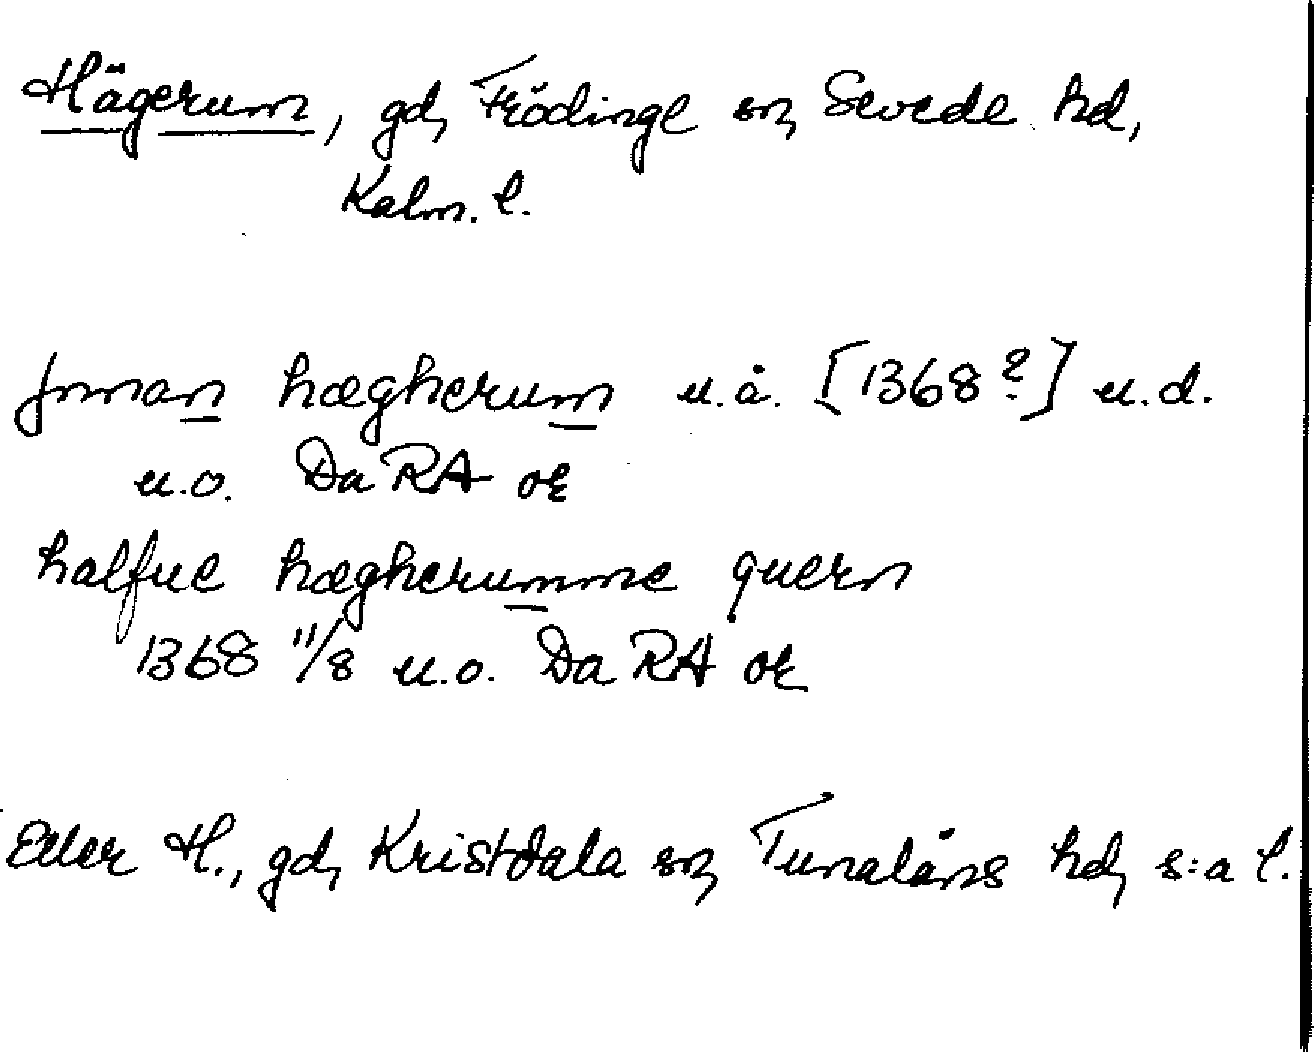 Hägerum, gd, Frödinge sn, Sevede hd,
Kalm. l.
jnnan hægherum u.å. [1368?] u.d.
u.o. Da RA or
halfue hægherumme quern
1368 11/8 u.o. Da RA or
Eller H., gd, Kristdala sn, Tunaläns hd, s:a l.